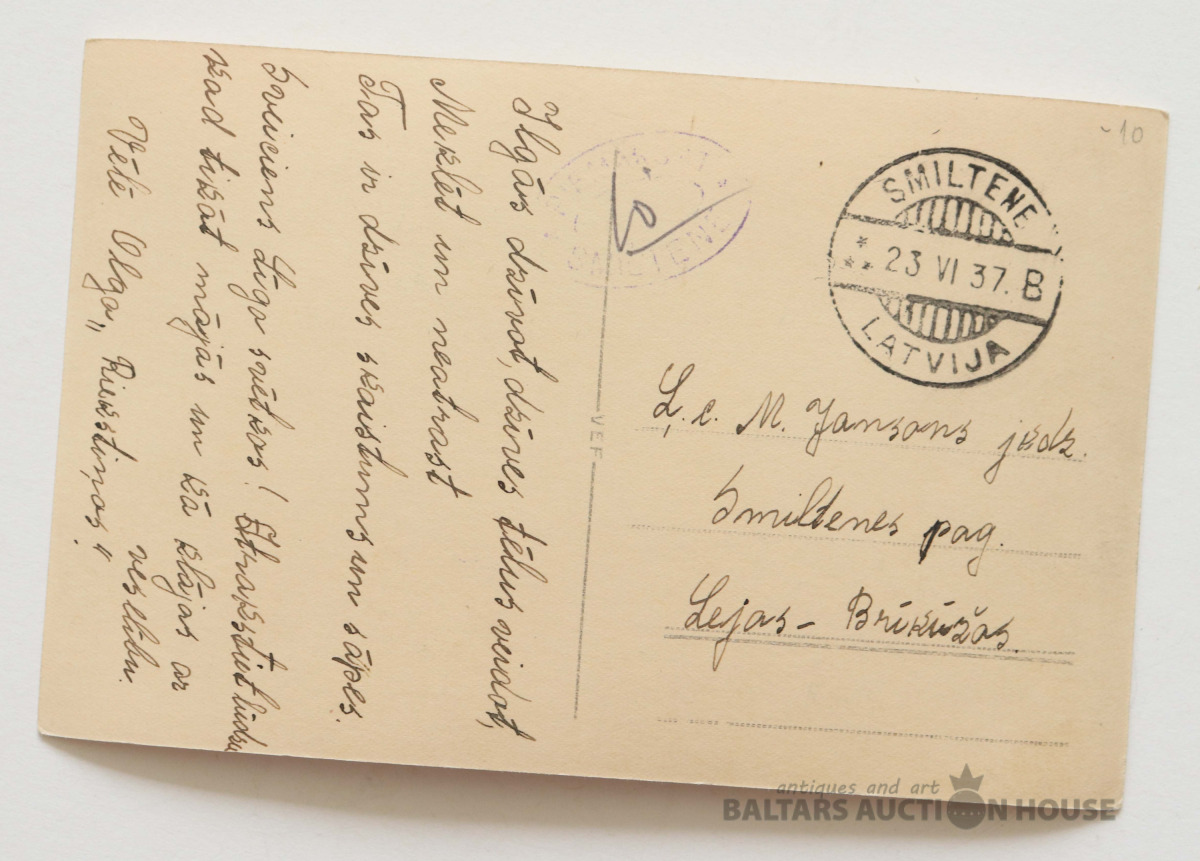 Ilgās dzīvot, dzīves tēlus veidot,
Meklēt un neatrast
Tas ir dzīves skaistums un sāpes.
Sveiciens Līgo svētkos! Atrakstiet lūdzu
kad tikāt mājās un kā klājas ar
veselību.
Vēlē Olga „Riekstiņos"
VEF
SMILTENE
SMILTENE
23 VI 37. B
LATVIJA
-10
Ļ. c. M. Jansons jkdz.
Smiltenes pag.
Lejas-Brīkūžos.
antiques and art
BALTARS AUCTION HOUSE